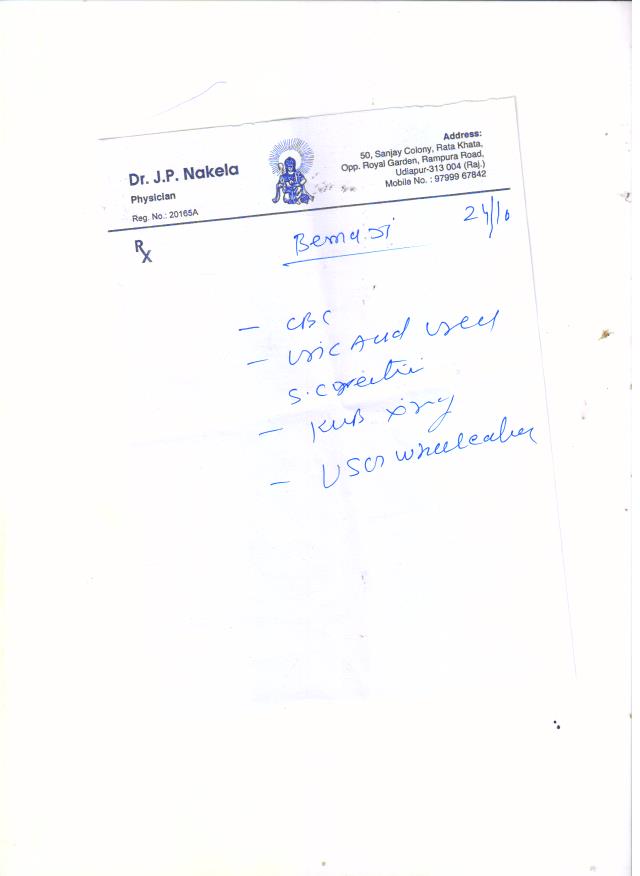 Dr. J.P. Nakela
Physician
Reg. No.: 20165A
Address:
50, Sanjay Colony, Rata Khata,
Opp. Royal Garden, Rampura Road,
Udiapur-313 004 (Raj.)
Mobile No. : 97999 67842
Rx
24/10
- CBC
- Uric Acid Urea
S. Creatin
- KUB Xray
- USG whole abdomen